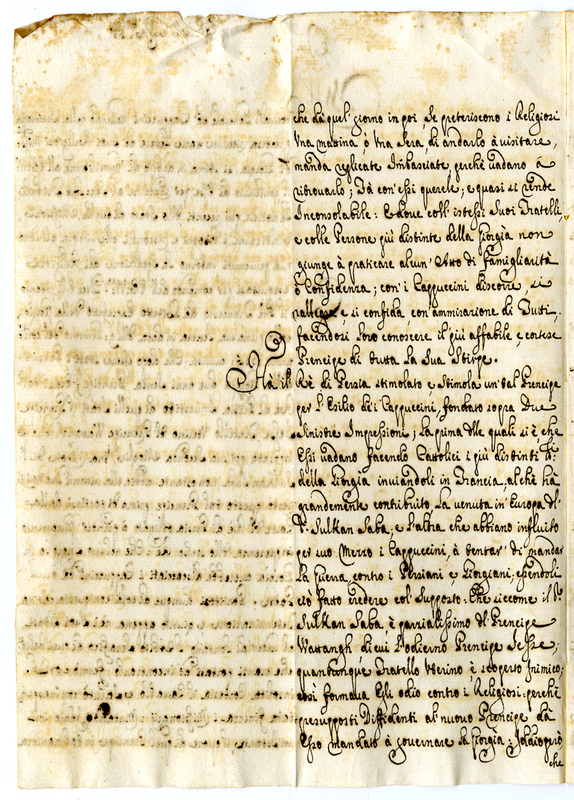 che da quel giorno in poi, se preteriscono i Religiosi
una matina, ò una sera, di andarlo à visitare,
manda replicate Imbasciate, perchè vadano à
ritrouarlo; Fà con'essi querele, e quasi si rende
Inconsolabile: E doue coll'istessi Suoi Fratelli,
e colle Persone più distinte della Giorgia non
giunge à praticare alcun' Atto di Famigliarità
ò Confidenza; con'i Cappuccini discorre, si
rallegra, e si confida, con'ammirazione di Tutti,
facendosi loro conoscere il più affabile, e cortese
Prencipe di tutta la Sua Stirpe.
Hà il Rè di Persia stimolato, e stimola un' tal Prencipe
per l'Esilio de'i Cappuccini, fondato sopra Due
sinistre Impressioni; La prima delle quali si è, che
Essi vadano facendo Cattolici i più distinti
della Giorgia inviandoli in Francia, al chè hà
grandemente contribuito la venuta in Europa del
P. Sulkan Saba, e l'altra che abbiano influito
per suo Mezzo i Cappuccini, à tentar' di mandar
la Guerra, contro i Persiani e Giorgiani, essendoli
ciò fatto credere col' Supposto. Che siccome il P.
Sulkan Saba è parzialissimo del Prencipe
Wattangh di cui l'odierno Prencipe Jesse,
quantunque Fratello Uterino, è scoperto Inimico;
così formava Egli odio contro i Religiosi, perchè
presupposti Diffidenti al nuovo Prencipe dà
Esso mandato à governare la Giorgia;
che